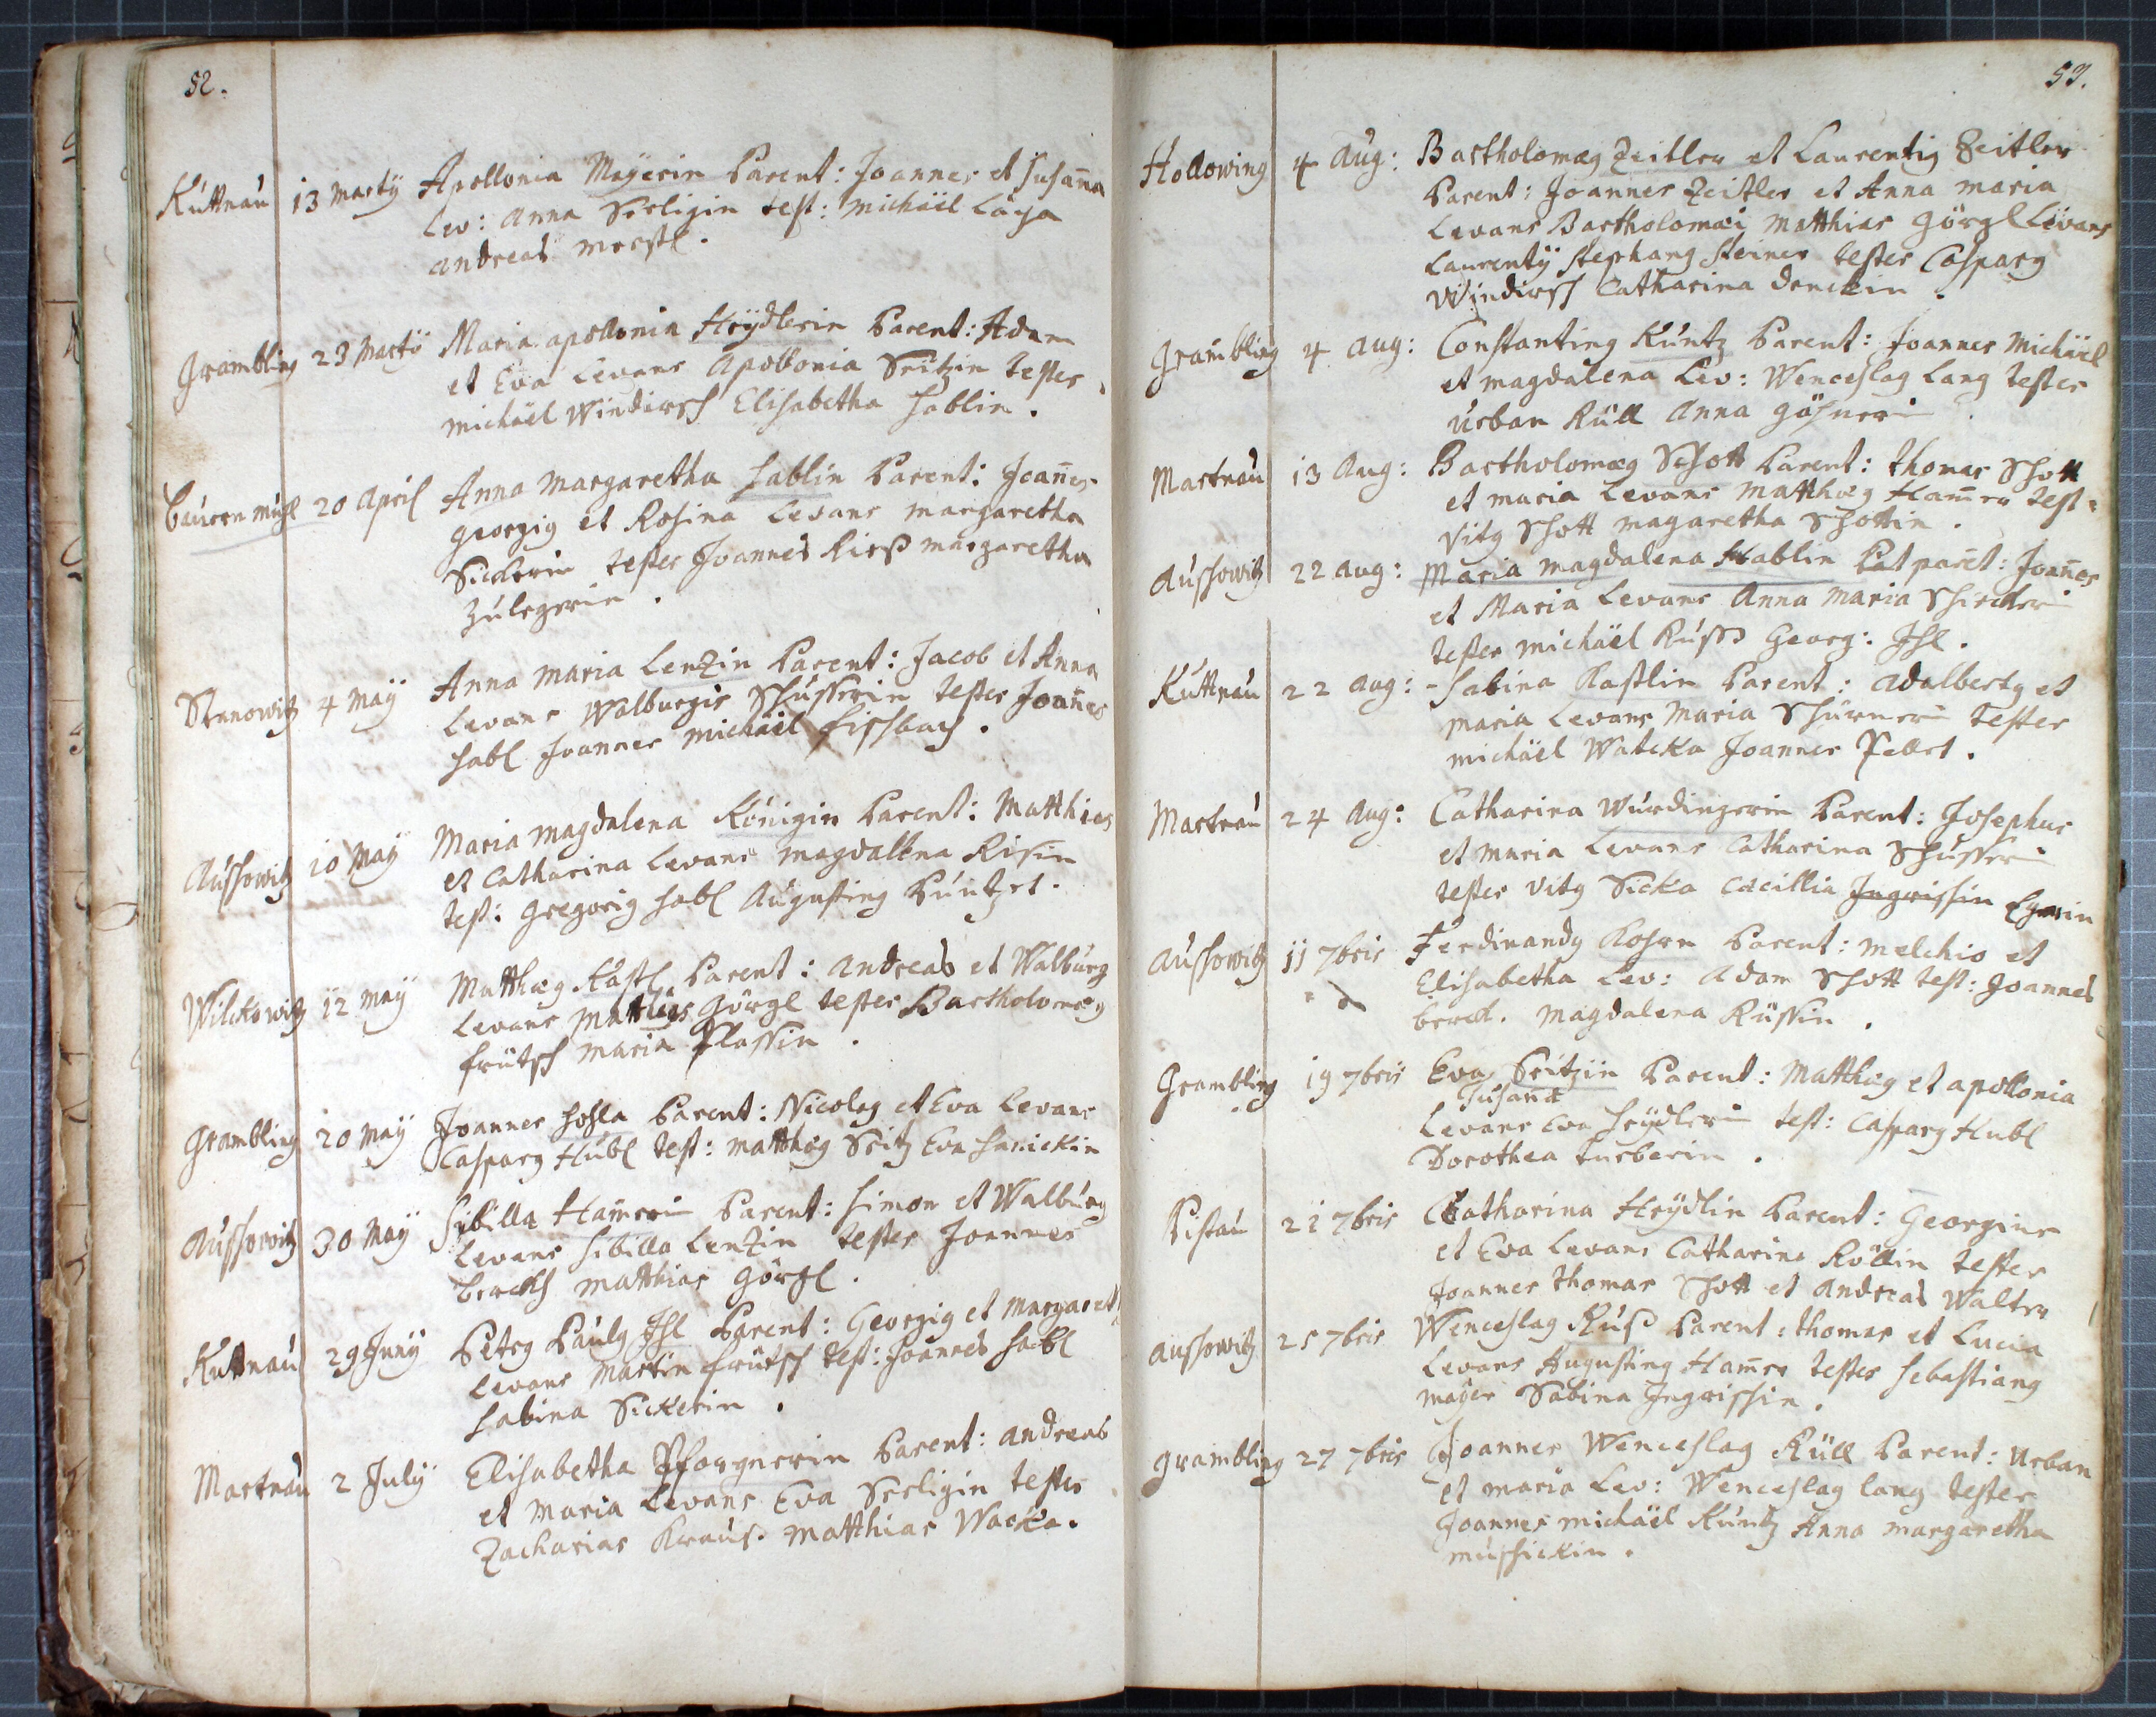 52.
Kuttnau 13 Martÿ Apollonia Maÿerin Parent: Joannes et Susana
Lev: Anna Seeligin test: Michäel
Andreas
Grambling 23 Martÿ Maria Apollonia Heÿdlerin Parent: Adam
et Eva Levans Apollonia Seitzin testes
Michäel Windirsch Elisabetha Hablin.
20 April Anna Margaretha Hablin Parent: Joannes
Georgig et Rosina Levans Margaretha
Sickerin testes Joannes Margaretha
Zulegerin.
Stanowitz 4 Maÿ Anna Maria Lenzin Parent: Jacob et Anna
Levans Walburgis Schusserin testes Joañes
Habl Joannes Michäel Fischbach.
Auschowitz 10 Maÿ Maria Magdalena Königin Parent: Matthias
et Catharina Levans Magdallena Risin
test: Gregorig Habl Augusting
Wilckowitz 12 Maÿ Matthæg Hastl Parent: Andreas et Walburg
Levans Matthias Görgl testes Bartholomæg
Frütsch Maria Plassin.
Grambling 20 Maÿ Joannes Hohla Parent: Nicolag et Eva Levans
Casparg Hubl test: Matthæg Seitz Eva
Auschowitz 30 Maÿ Sibilla Ham̄erin Parent: Simon et Walburg
Levans Sibilla Lenzin testes Joannes
Matthias Görgl.
Kuttnau 29 Junÿ Petrg Paulg Ihl Parent: Georgig et Margareth
Levans Martin Frütsch test: Joannes Habl
Sabina Sickerin.
Martnau 2 Julÿ Elisabetha Parent: Andreas
et Maria Levans Eva Seeligin testes
Zacharias Kraus. Matthias Wacka.
53.
Hollowing 4 Aug: Bartholomæg Zeitler et Laurentig Zeitler
Parent: Joannes Zeitler et Anna Maria
Levans Bartholomæi Matthias Görgl Levans
Laurentÿ Stephang Steiner testes Casparg
Windirsch Catharina Denckin.
Grambling 4 Aug: Constanting Kuntz Parent: Joannes Michäel
et Magdalena Lev: Wenceslag Lang testes
Urban Rüll Anna
Martnau 13 Aug: Bartholomæg Schott Parent: Thomas Schott
et Maria Levans Matthæg Ham̄er test:
Vitg Schott Magaretha Schottin.
Auschowitz 22 Aug: Maria Magdalena Hablin Pat parēt: Joañes
et Maria Levans Anna Maria
testes Michäel Georg: Ihl.
Kuttnau 22 Aug: - Sabina Rastlin Parent: Adalbertg et
Maria Levans Maria testes
Michäel Watcka Joannes
Martnau 24 Aug: Catharina Würdingerin Parent: Josephus
et Maria Levans Catharina Schusserin
testes Vitg Sicka Cæcillia Ingrischin Egerin
Auschowitz 11 7bris Ferdinandg Parent: Melchio et
Elisabetha Lev: Adam Schott test: Joannes
Magdalena Rüssin.
Grambling 19 7bris Eva Seitzin Parent: Matthæg et Apollonia
Susana
Levans Eva Heÿdlerin test: Casparg Hubl
Dorothea
Pistau 21 7bris Catharina Heÿdlin Parent: Georgius
et Eva Levans Catharina Röllin testes
Joannes Thomas Schott et Andreas Walter
Auschowitz 25 7bris Wenceslag Rüß Parent: Thomas et Lucia
Levans Augusting Ham̄er testes Sebastiang
Maÿer Sabina Ingrischin.
Grambling 27 7bris Joannes Wenceslag Rüll Parent: Urban
et Maria Lev: Wenceslag Lang testes
Joannes Michäel Kuntz Anna Margaretha
Muschickin.